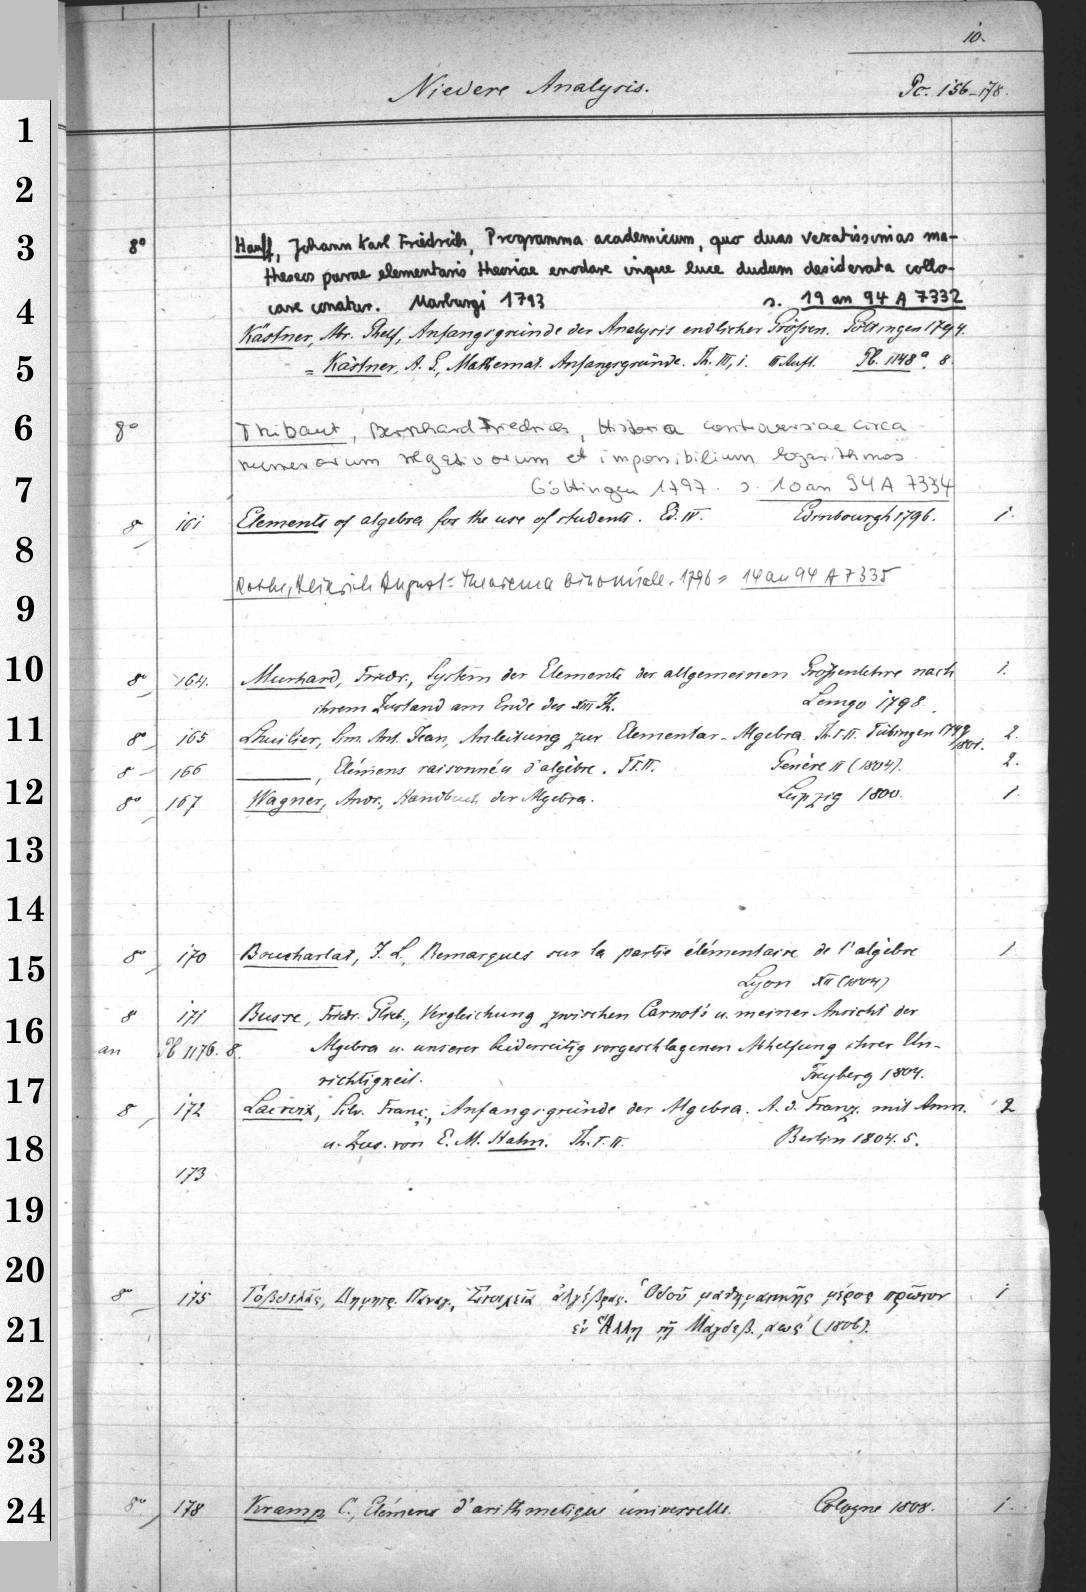 10.
Niedere Analysis. Pc. 156-178.
1
2
3 8° Hauff, Johann Karl Friedrich, Programma academicum, quo duas vexatissimas ma-
theseos purae elementaris theoriae enodare inque luce dudum desiderata collo-
4 care conatur. Marburgi 1793 s. 19 an 94 A 7332
Kästner, Abr. Ghelf, Anfangsgründe der Analysis endlicher Größen. Göttingen 1794.
5 = Kästner, A. G., Mathemat. Anfangsgründe. Th. III, 1. III Aufl. Pb. 1148ª. 8.
6 8° Thibaut, Bernhard Friedrich, Historia controversiae circa
numerorum negativorum et impossibilium logarithmos.
7 Göttingen 1797. s. 10 an 94 A 7334
8 161 Elements of algebra for the use of students. Ed. IV. Edinbourgh 1796. 1.
8
Rothe, Heinrich August: Theorema binomiale. 1796 = 14 an 94 A 7335
9
10 8° 164. Murhard, Friedr., System der Elemente der allgemeinen Größenlehre nach 1.
ihrem Zustand am Ende des XVIII Jh. Lemgo 1798.
11 8° 165 Lhuilier, Sim. Ant. Jean, Anleitung zur Elementar-Algebra. Th. I. II. Tübingen 1799/1801. 2.
8 166 ———, Elémens raisonnés d'algèbre. T. I. II. Genève (1804). 2.
12 8° 167 Wagner, Andr., Handbuch der Algebra. Leipzig 1800. 1.
13
14
15 8° 170 Boucharlat, J. L., Remarques sur la partie élémentaire de l'algèbre 1
Lyon XII (1804)
16 8 171 Busse, Friedr. Gtlieb., Vergleichung zwischen Carnot's u. meiner Ansicht der
an Pb 1176. 8. Algebra u. unserer beiderseitig vorgeschlagenen Abhelfung ihrer Un-
17 richtigkeit. Freyberg 1804.
8 172 Lacroix, Silv. Franç., Anfangsgründe der Algebra. A. d. Franz. mit Anm. 2
18 u. Zus. von E. M. Hahn. Th. I. II. Berlin 1804. 5.
173
19
20
8° 175 Γοβδελᾶς, Δημητρ. Παναγ., Στοιχεῖα ἀλγέβρας. Ὁδοῦ μαθηματικῆς μέρος πρῶτον 1
21 ἐν Ἅλλῃ τῇ Μαγδεβ. αωϛ' (1806).
22
23
24 8° 178 Kramp, C., Elémens d'arithmetique universelle. Cologne 1808. 1.